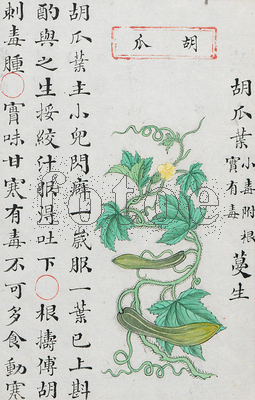 胡瓜
胡瓜葉小毒附根
實有毒
蔓生
胡瓜葉主小兒閃癖一歲服一葉已上斟
酌與之生挼絞汁服得吐下○根擣傅胡
刺毒腫○實味甘寒有毒不可多食動寒